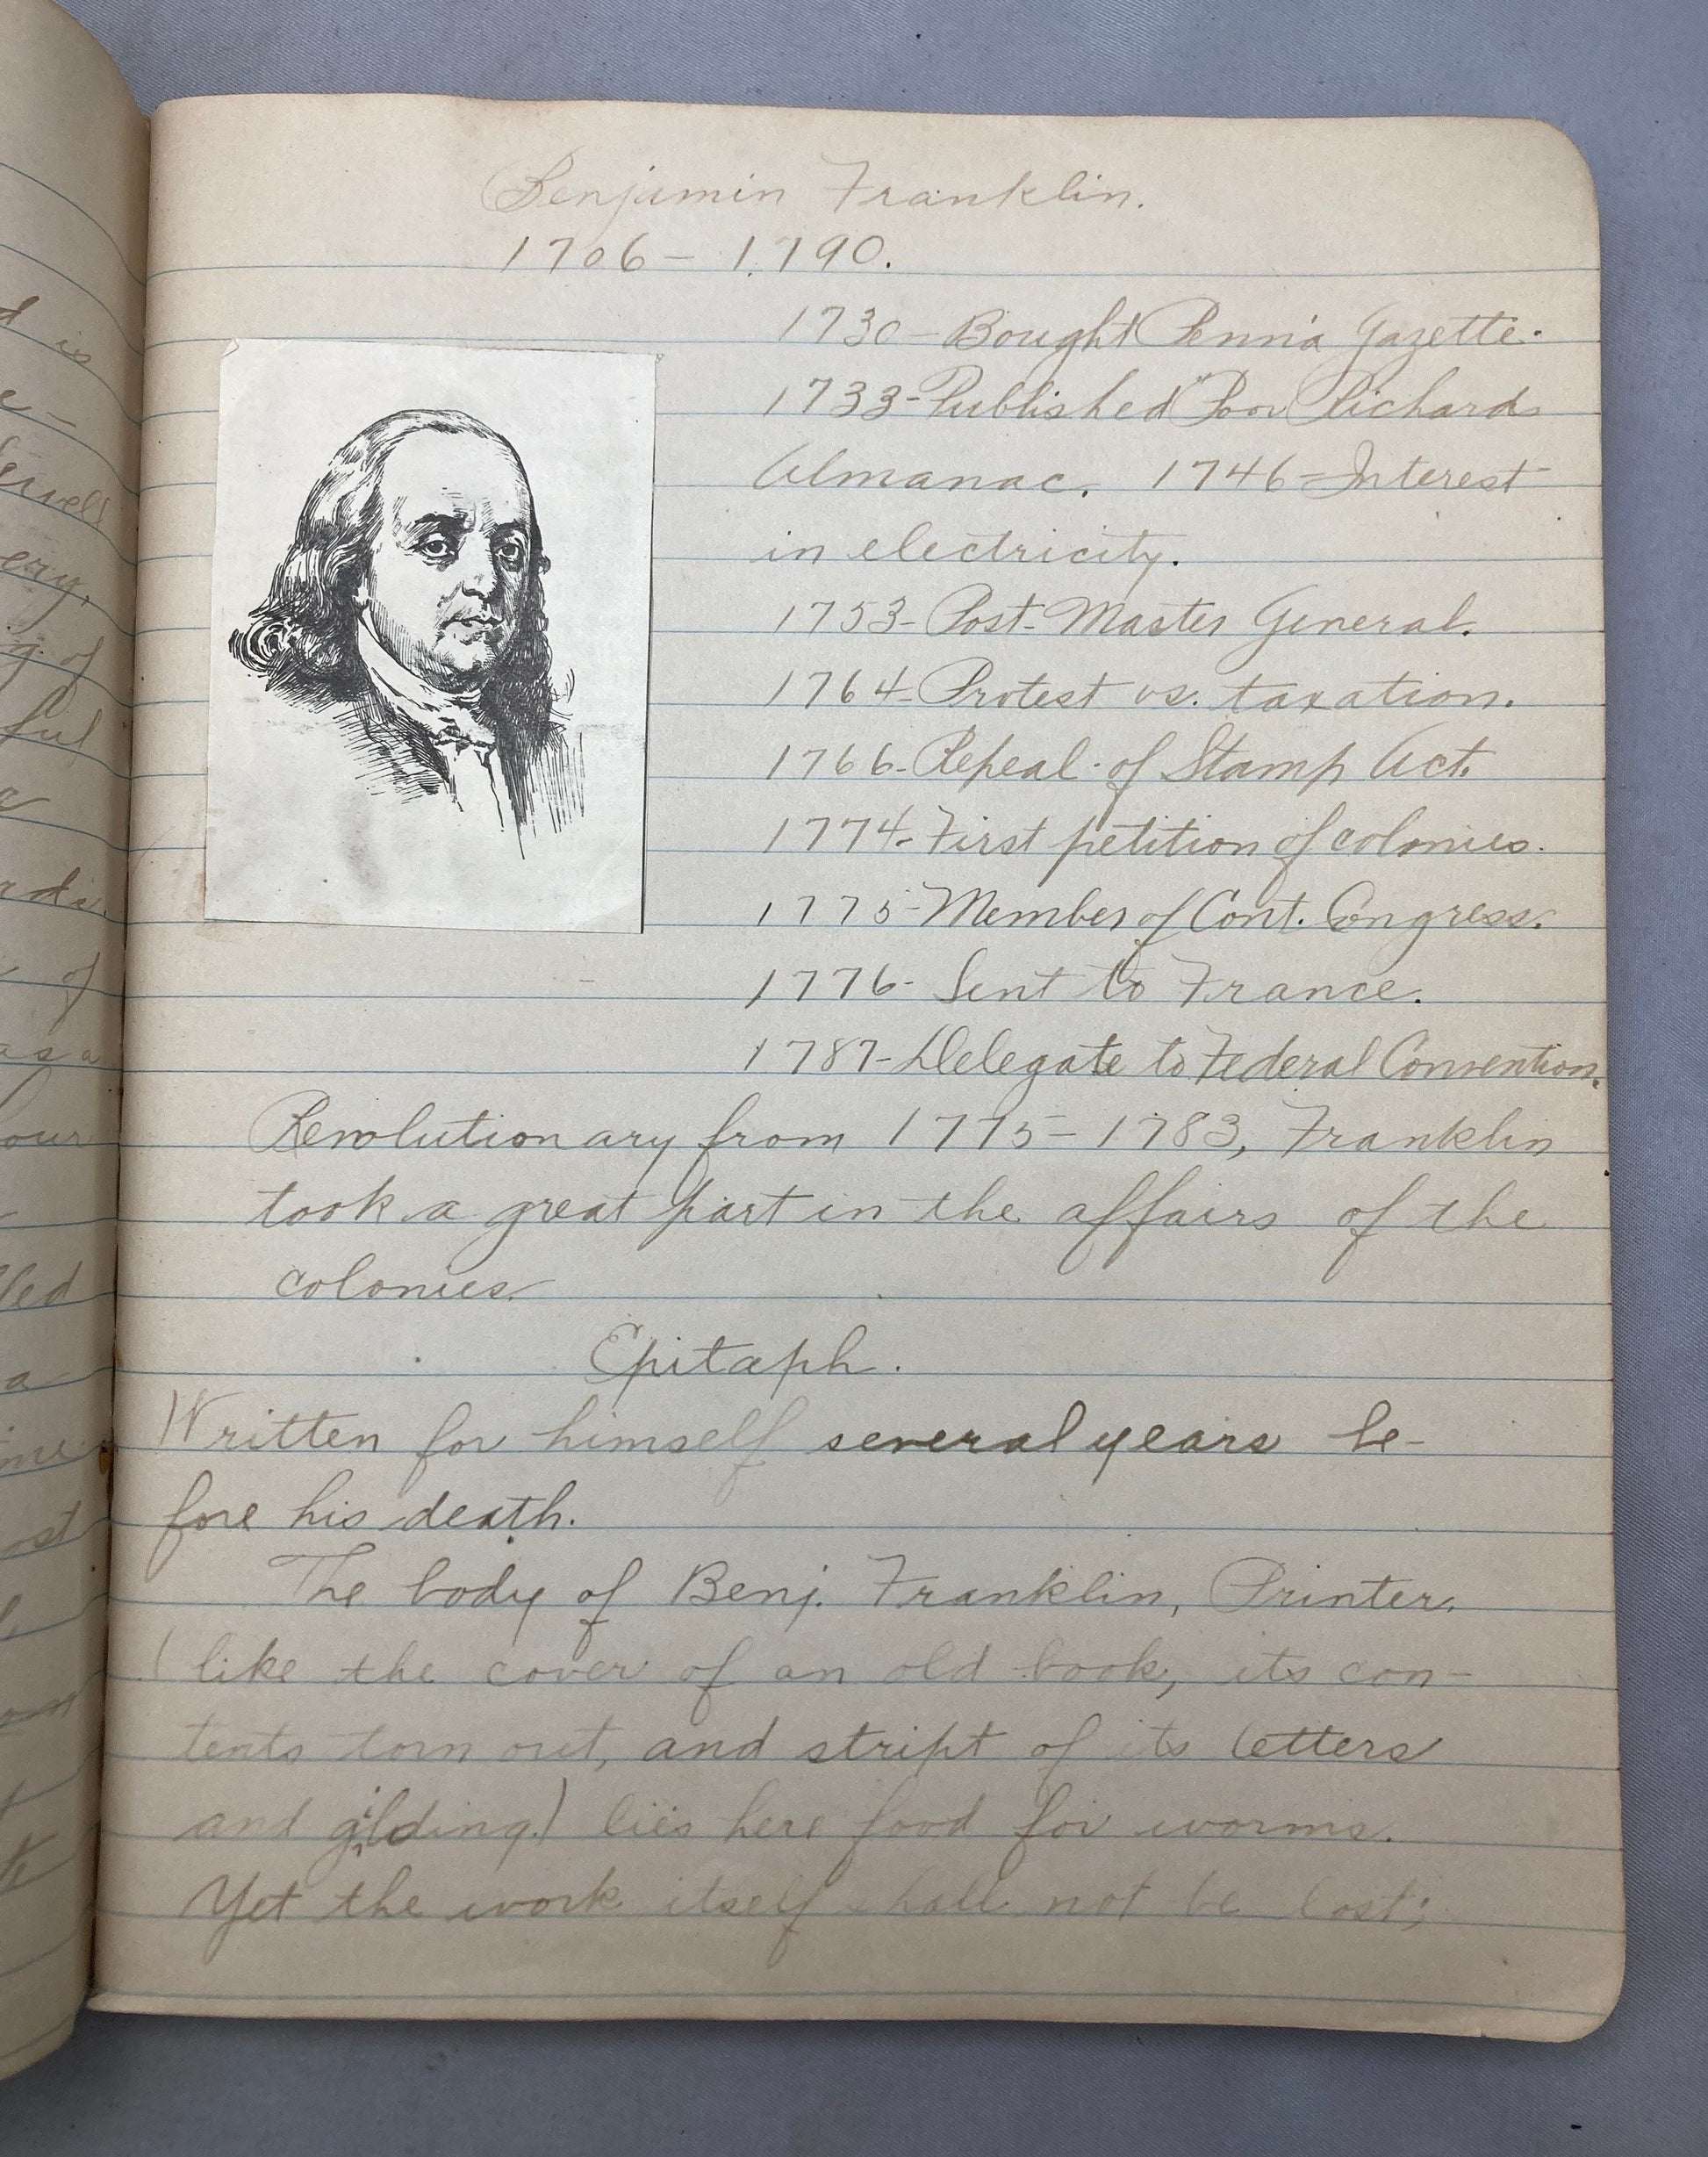 Benjamin Franklin.
1706 - 1790.
1730 - Bought Penn'a Gazette.
1733 - Published "Poor Richards
Almanac. 1746 = Interest
in electricity.
1753 - Post-Master General.
1764 - Protest vs. taxation.
1766 - Repeal of Stamp Act.
1774 - First petition of colonies.
1775 - Member of Cont. Congress.
1776 - Sent to France.
1787 - Delegate to Federal Convention.
Revolutionary from 1775 - 1783, Franklin
took a great part in the affairs of the
colonies.
Epitaph.
Written for himself several years be-
fore his death.
The body of Benj. Franklin, Printer,
(like the cover of an old book, its con-
tents torn out, and stript of its letters
and gilding) lies here food for worms.
Yet the work itself shall not be lost;